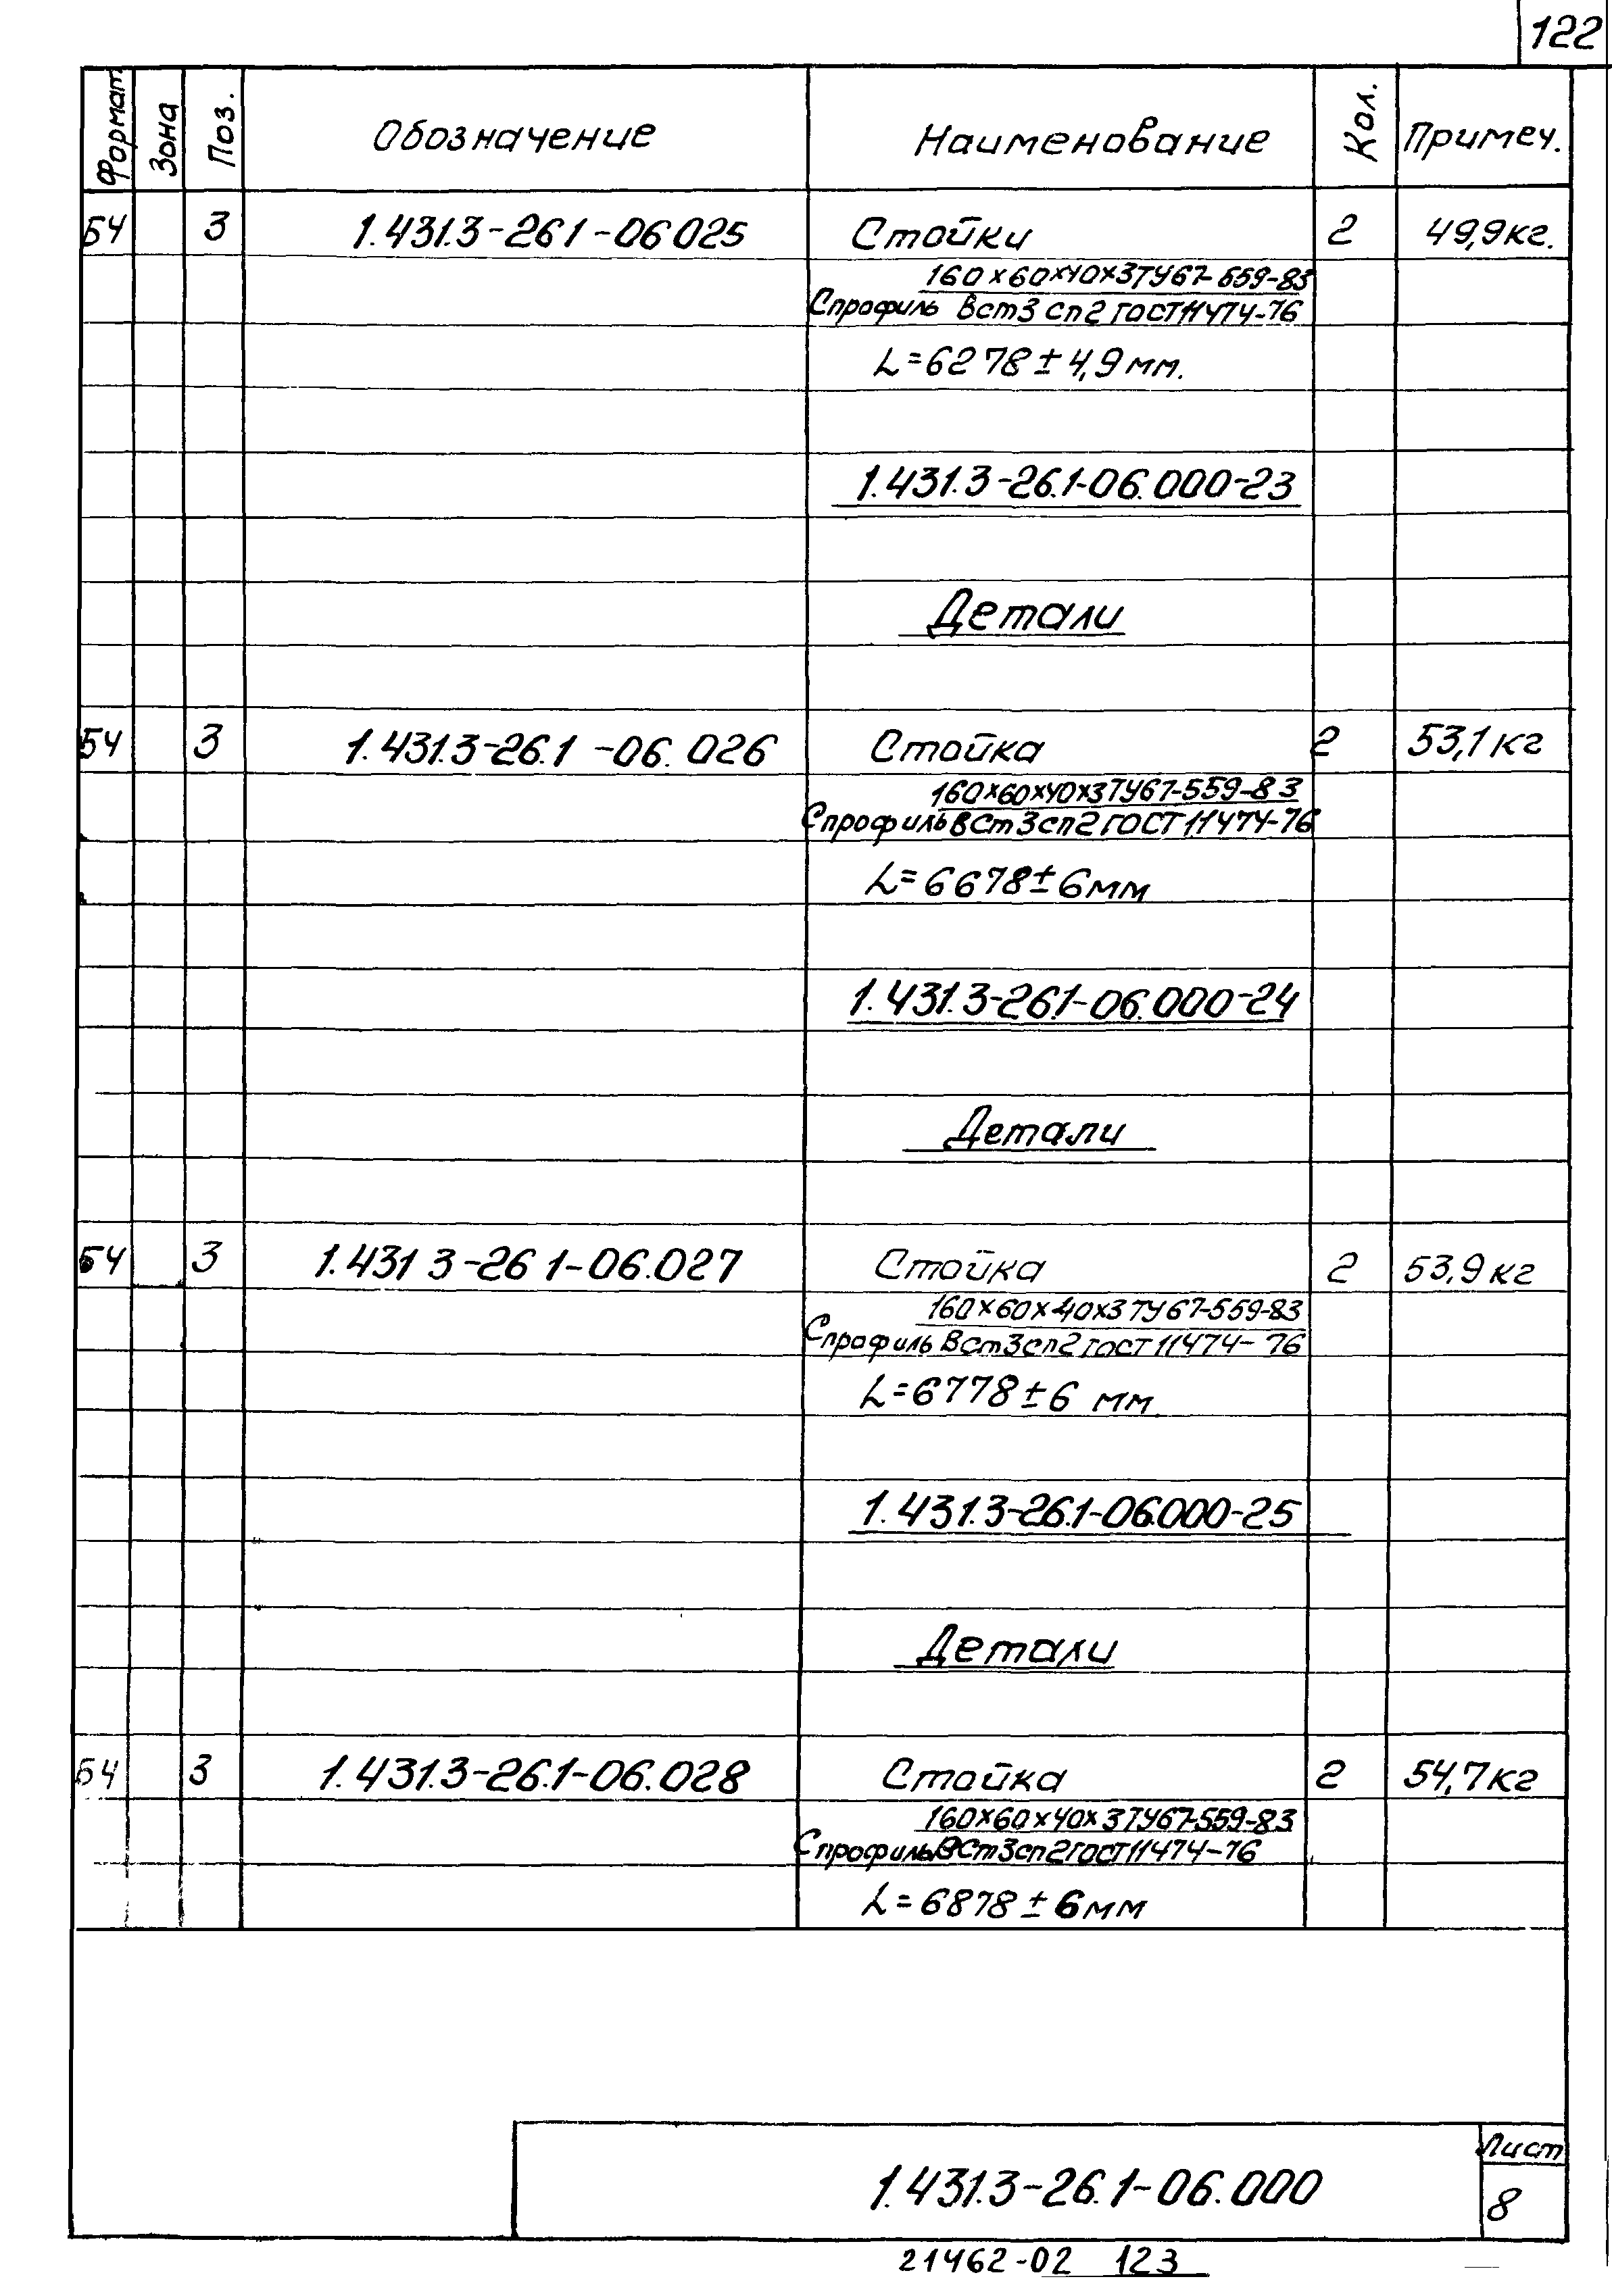 122
Формат Зона Поз. Обозначение Наименование Кол. Примеч.
БЧ 3 1.431.3-26 1-06 025 Стойки 2 49,9кг.
160х60х40х3ТУ67-559-83
Спрофиль Вст3 сп2 ГОСТ11474-76
L=6278±4,9мм.
1.431.3-26.1-06.000-23
Детали
БЧ 3 1.431.3-26.1-06.026 Стойка 2 53,1кг
160х60х40х3ТУ67-559-83
Спрофиль ВСт3сп2 ГОСТ11474-76
L=6678±6мм
1.431.3-26.1-06.000-24
Детали
БЧ 3 1.431 3-26 1-06.027 Стойка 2 53,9кг
160х60х40х3ТУ67-559-83
Спрофиль ВСт3сп2 ГОСТ 11474-76
L=6778±6 мм
1.431.3-26.1-06.000-25
Детали
БЧ 3 1.431.3-26.1-06.028 Стойка 2 54,7кг
160х60х40х3ТУ67-559-83
Спрофиль ВСт3сп2 ГОСТ11474-76
L=6878±6мм
1.431.3-26.1-06.000
Лист
8
21462-02 123